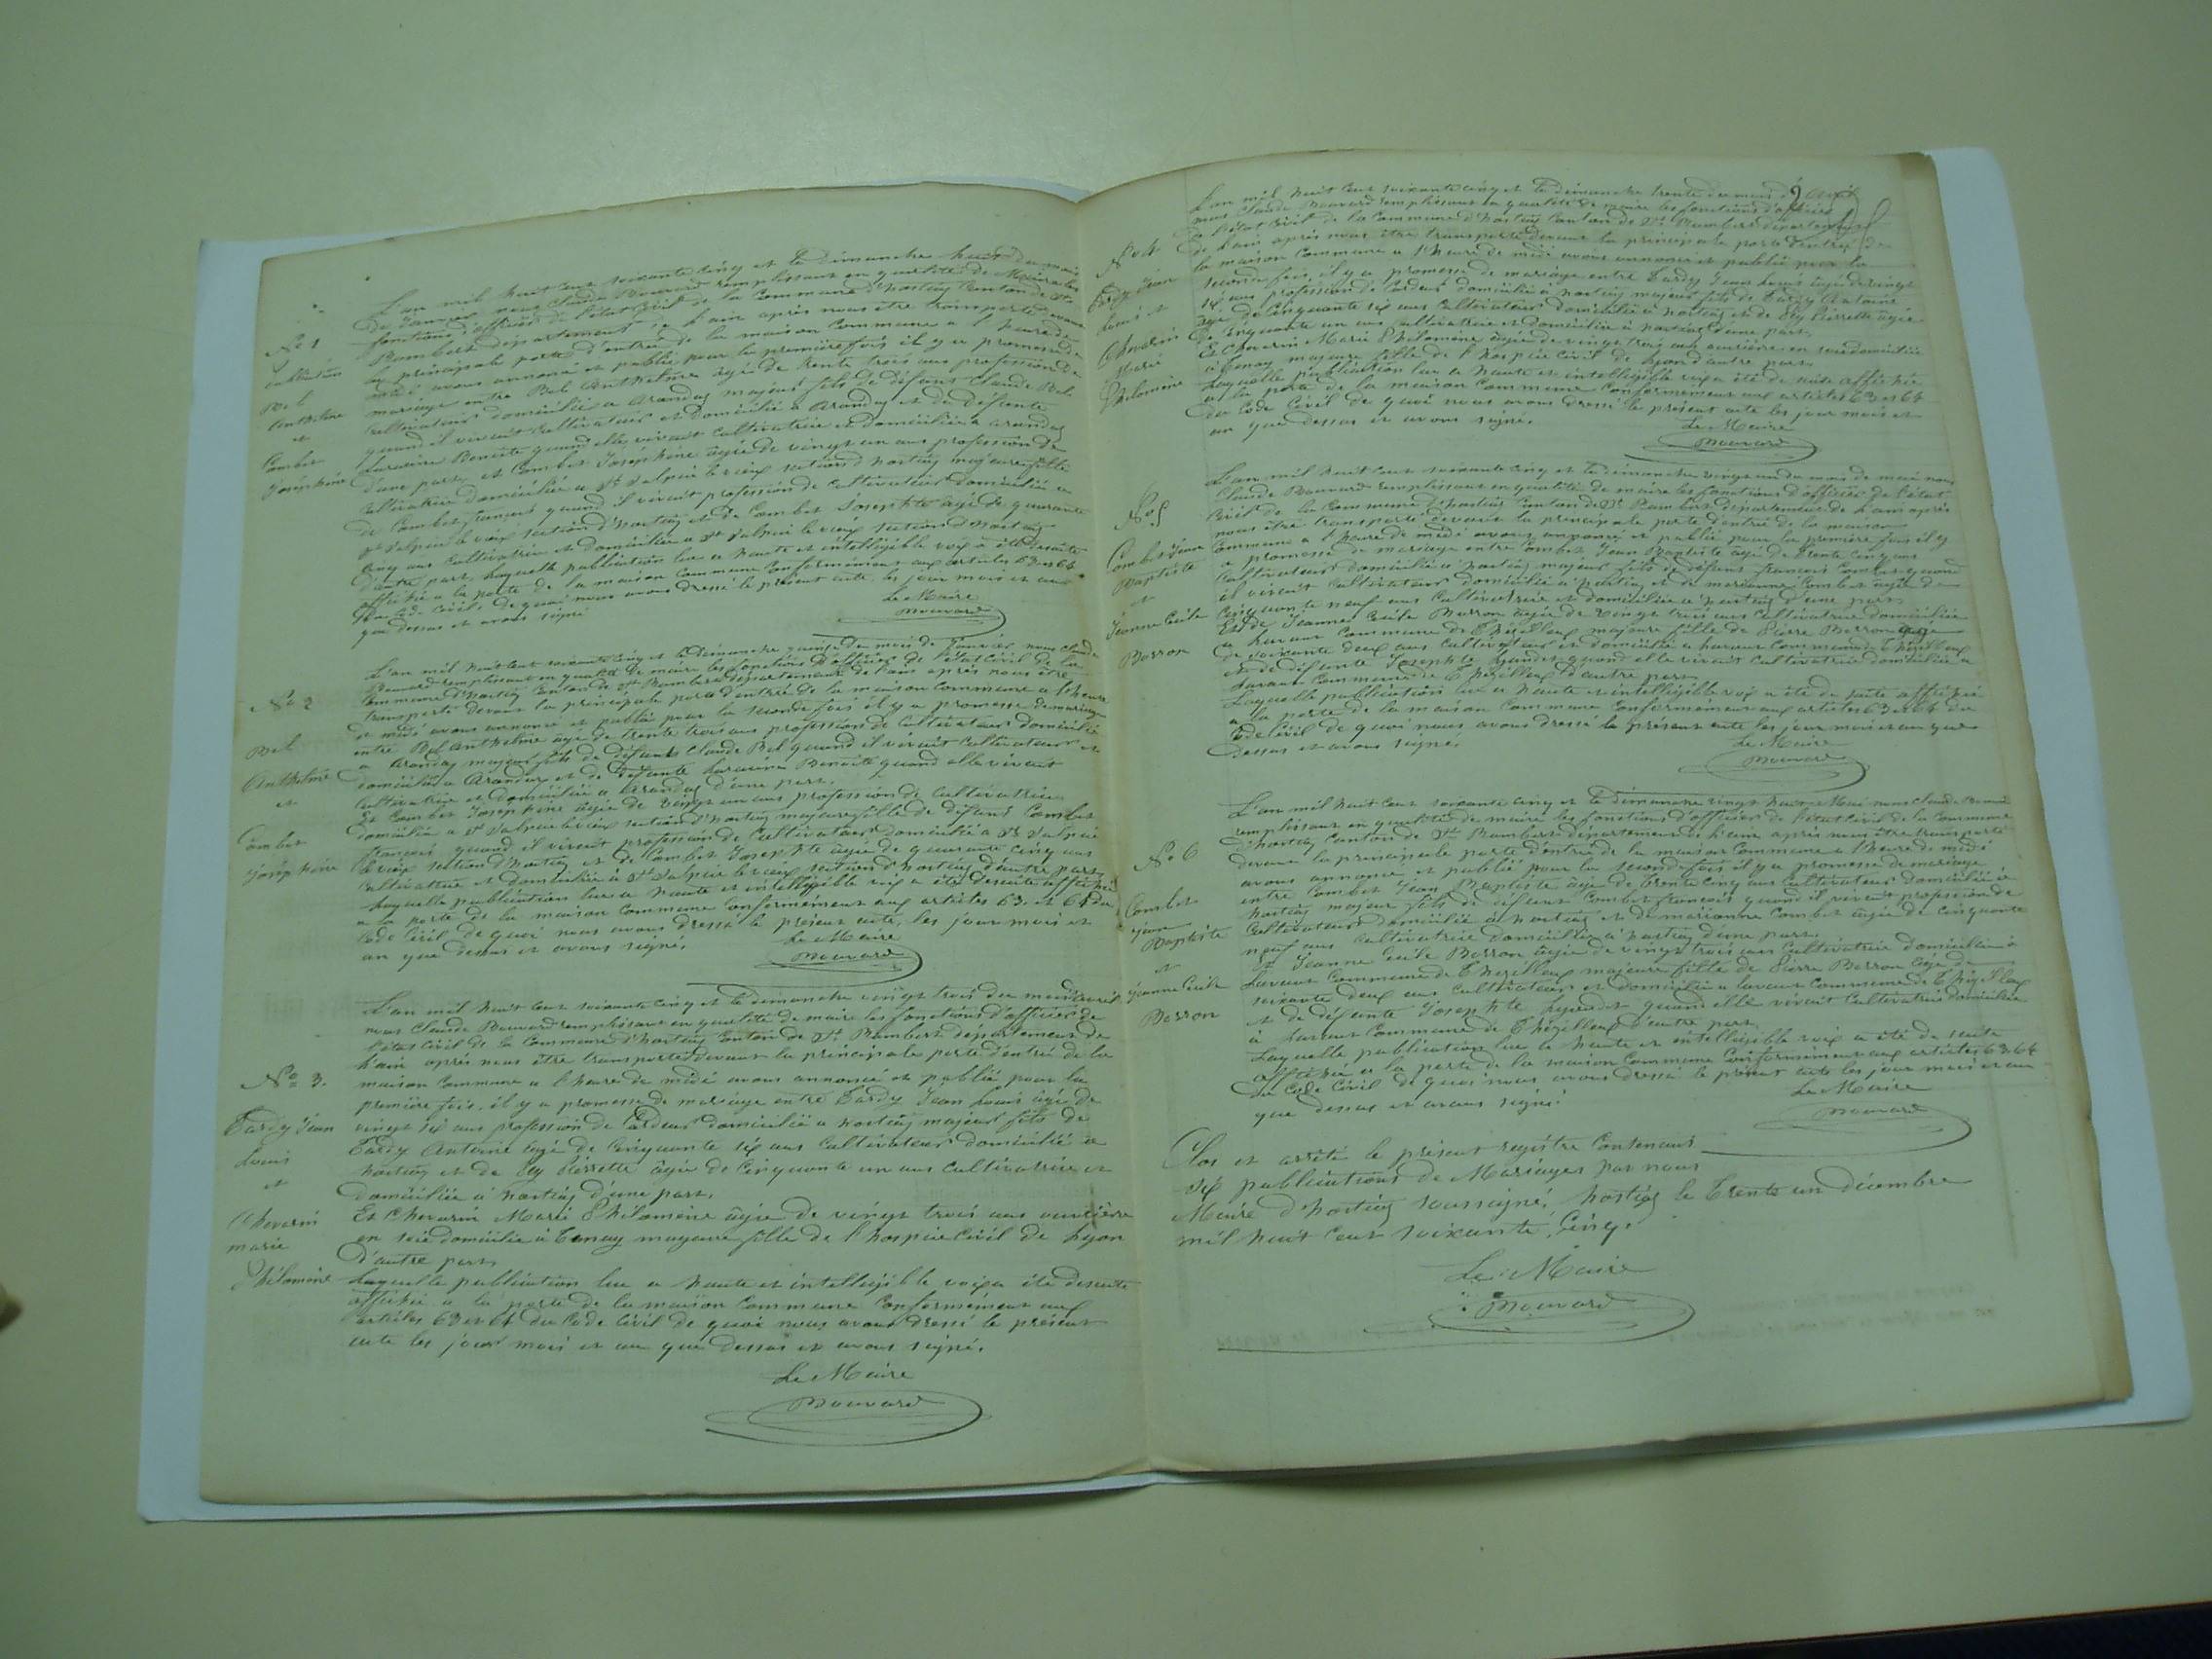 L'an mil huit cent soixante cinq et le dimanche huit du mois
de Janvier nous Claude Bouvard remplissant en qualité de Maire les
fonctions d'officier de l'état Civil de la Commune d'hostiaz Canton de St
Rambert département de l'ain après nous être transporté devant
la principale porte d'entrée de la maison Commune a l'heure de
midi avons annoncé et publié pour la première fois il y a promesse de
mariage entre Bel Anthelme âgé de trente trois ans profession de
cultivateur domicilié a Arandas majeur fils de défunt Claude Bel
quand il vivait Cultivateur et domicilié a Arandas et de défunte
Benoite quand elle vivait cultivatrice et domiciliée a arandas
d'une part, et Combet Joséphine âgée de vingt un ans profession de
cultivatrice domiciliée a St Sulpice le vieux section d'hostiaz majeure fille
de Combet françois quand il vivait profession de cultivateur domicilié a
St Sulpice le vieux section d'hostiaz et de Combet Josephte âgée de quarante
cinq ans cultivatrice et domiciliée a St Sulpice le vieux section d'hostiaz
d'autre part, laquelle publication lue a haute et intelligible voix a été de suite
affichée a la porte de la maison Commune Conformément aux articles 63 et 64
du Code Civil, de quoi nous avons dressé le présent acte les jour mois et an
que dessus et avons signé
Le Maire
Bouvard
No 1
publication
Bel
Anthelme
et
Combet
Joséphine
L'an mil huit cent soixante cinq et le Dimanche quinze du mois de Janvier nous Claude
Bouvard remplissant en qualité de maire les fonctions d'officier de l'état Civil de la
Commune d'hostiaz Canton de St Rambert département de l'ain après nous être
transporté devant la principale porte d'entrée de la maison Commune a l'heure
de midi avons annoncé et publié pour la seconde fois il y a promesse de mariage
entre Bel Anthelme âgé de trente trois ans profession de Cultivateur domicilié
a Arandas majeur fils de défunt Claude Bel quand il vivait Cultivateur et
domicilié a Arandas et de défunte Benoite quand elle vivait
Cultivatrice et domiciliée a Arandas d'une part.
Et Combet Josephine âgée de vingt un ans profession de cultivatrice
domiciliée a St Sulpice le vieux section d'hostiaz majeure fille de défunt Combet
françois quand il vivait profession de Cultivateur domicilié a St Sulpice
le vieux section d'hostiaz et de Combet Josephte âgée de quarante cinq ans
Cultivatrice et domiciliée a St Sulpice le vieux section d'hostiaz d'autre part,
Laquelle publication lue a haute et intelligible voix a été de suite affichée
a la porte de la maison Commune Conformément aux articles 63 et 64 du
Code Civil de quoi nous avons dressé le présent acte, les jour mois et
an que dessus et avons signé.
Le Maire
Bouvard
No 2
Bel
Anthelme
et
Combet
Joséphine
L'an mil huit cent soixante cinq et le dimanche vingt trois du mois d'avril
nous Claude Bouvard remplissant en qualité de maire les fonctions d'officier de
l'état Civil de la Commune d'hostiaz Canton de St Rambert département de
l'ain après nous être transporté devant la principale porte d'entrée de la
maison Commune a l'heure de midi avons annoncé et publié pour la
première fois, il y a promesse de mariage entre Tardy Jean Louis âgé de
vingt six ans profession de Cardeur domicilié a hostiaz majeur fils de
Tardy Antoine âgé de Cinquante six ans Cultivateur domicilié a
hostiaz et de Pierrette âgée de Cinquante un ans cultivatrice et
domiciliée a hostiaz d'une part.
Et Chevarin Marie Philomène âgée de vingt trois ans ouvrière
en soie domiciliée a Tenay majeure fille de l'hospice Civil de Lyon
d'autre part,
Laquelle publication lue a haute et intelligible voix a été de suite
affichée a la porte de la maison Commune Conformément aux
articles 63 et 64 du Code Civil de quoi nous avons dressé le présent
acte les jour mois et an que dessus et avons signé.
Le Maire
Bouvard
No 3.
Tardy Jean
Louis
et
Chevarin
marie
Philomène
2
L'an mil huit cent soixante cinq et le dimanche trente du mois d'avril
nous Claude Bouvard remplissant en qualité de maire les fonctions d'officier
de l'état Civil de la Commune d'hostiaz Canton de St Rambert département
de l'ain après nous être transporté devant la principale porte d'entrée de
la maison Commune a l'heure de midi avons annoncé et publié pour la
seconde fois, il y a promesse de mariage entre Tardy Jean Louis âgé de vingt
six ans profession de Cardeur domicilié a hostiaz majeur fils de Tardy Antoine
âgé de Cinquante six ans Cultivateur domicilié a hostiaz et de Pierrette âgée
de Cinquante un ans cultivatrice et domiciliée a hostiaz d'une part,
Et Chevarin Marie Philomène âgée de vingt trois ans ouvrière en soie domiciliée
a Tenay majeure fille de l'hospice Civil de Lyon d'autre part,
Laquelle publication lue a haute et intelligible voix a été de suite affichée
a la porte de la maison Commune Conformément aux articles 63 et 64
du Code Civil de quoi nous avons dressé le présent acte les jour mois et
an que dessus et avons signé.
Le Maire
Bouvard
No 4
Tardy Jean
Louis et
Chevarin
Marie
Philomène
L'an mil huit cent soixante cinq et le dimanche vingt un du mois de mai nous
Claude Bouvard remplissant en qualité de maire les fonctions d'officier de l'état
Civil de la Commune d'hostiaz Canton de St Rambert département de l'ain après
nous être transporté devant la principale porte d'entrée de la maison
Commune a l'heure de midi avons annoncé et publié pour la première fois il y
a promesse de mariage entre Combet Jean Baptiste âgé de trente cinq ans
Cultivateur domicilié a hostiaz majeur fils de défunt françois Combet quand
il vivait Cultivateur domicilié a hostiaz et de marianne Combet âgée de
Cinquante neuf ans Cultivatrice et domiciliée a hostiaz d'une part,
Et de Jeanne Cécile Borron âgée de vingt trois ans Cultivatrice domiciliée
a Commune de Thézillieu majeure fille de Pierre Borron âgé
de soixante deux ans Cultivateur et domicilié a Commune de Thézillieu
et de défunte Josephte quand elle vivait Cultivatrice domiciliée a
Commune de Thézillieu d'autre part,
Laquelle publication lue a haute et intelligible voix a été de suite affichée
a la porte de la maison Commune Conformément aux articles 63 et 64 du
Code Civil de quoi nous avons dressé le présent acte les jour mois et an que
dessus et avons signé.
Le Maire
Bouvard
No 5
Combet Jean
Baptiste
et
Jeanne Cécile
Borron
L'an mil huit cent soixante cinq et le dimanche vingt huit Mai nous Claude Bouvard
remplissant en qualité de maire les fonctions d'officier de l'état Civil de la Commune
d'hostiaz Canton de St Rambert département de l'ain après nous être transporté
devant la principale porte d'entrée de la maison Commune a l'heure de midi
avons annoncé et publié pour la seconde fois il y a promesse de mariage
entre Combet Jean Baptiste âgé de trente cinq ans Cultivateur domicilié a
hostiaz majeur fils de défunt Combet françois quand il vivait profession de
Cultivateur domicilié a hostiaz et de marianne Combet âgée de cinquante
neuf ans Cultivatrice domiciliée a hostiaz d'une part.
Et Jeanne Cécile Borron âgée de vingt trois ans Cultivatrice domiciliée a
Commune de Thézillieu majeure fille de Pierre Borron âgé de
soixante deux ans Cultivateur et domicilié a Commune de Thézillieu
et de défunte Josephte quand elle vivait Cultivatrice domiciliée
a Commune de Thézillieu d'autre part,
Laquelle publication lue a haute et intelligible voix a été de suite
affichée a la porte de la maison Commune Conformément aux articles 63 64
du Code Civil de quoi nous avons dressé le présent acte les jour mois et an
que dessus et avons signé.
Le Maire
Bouvard
No 6
Combet
Jean
Baptiste
et
Jeanne Cécile
Borron
Clos et arrêté le présent registre Contenant
six publications de Mariages par nous
Maire d'hostiaz soussigné, hostiaz le trente un décembre
mil huit cent soixante Cinq.
Le Maire
Bouvard